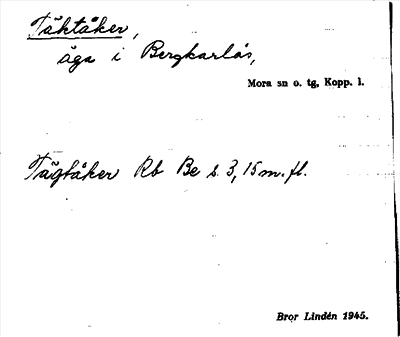 Täktåker,
äga i Bergkarlås,
Mora sn o. tg, Kopp. l.
Tägtåker Rb Be s. 3, 15 m. fl.
Bror Lindén 1945.